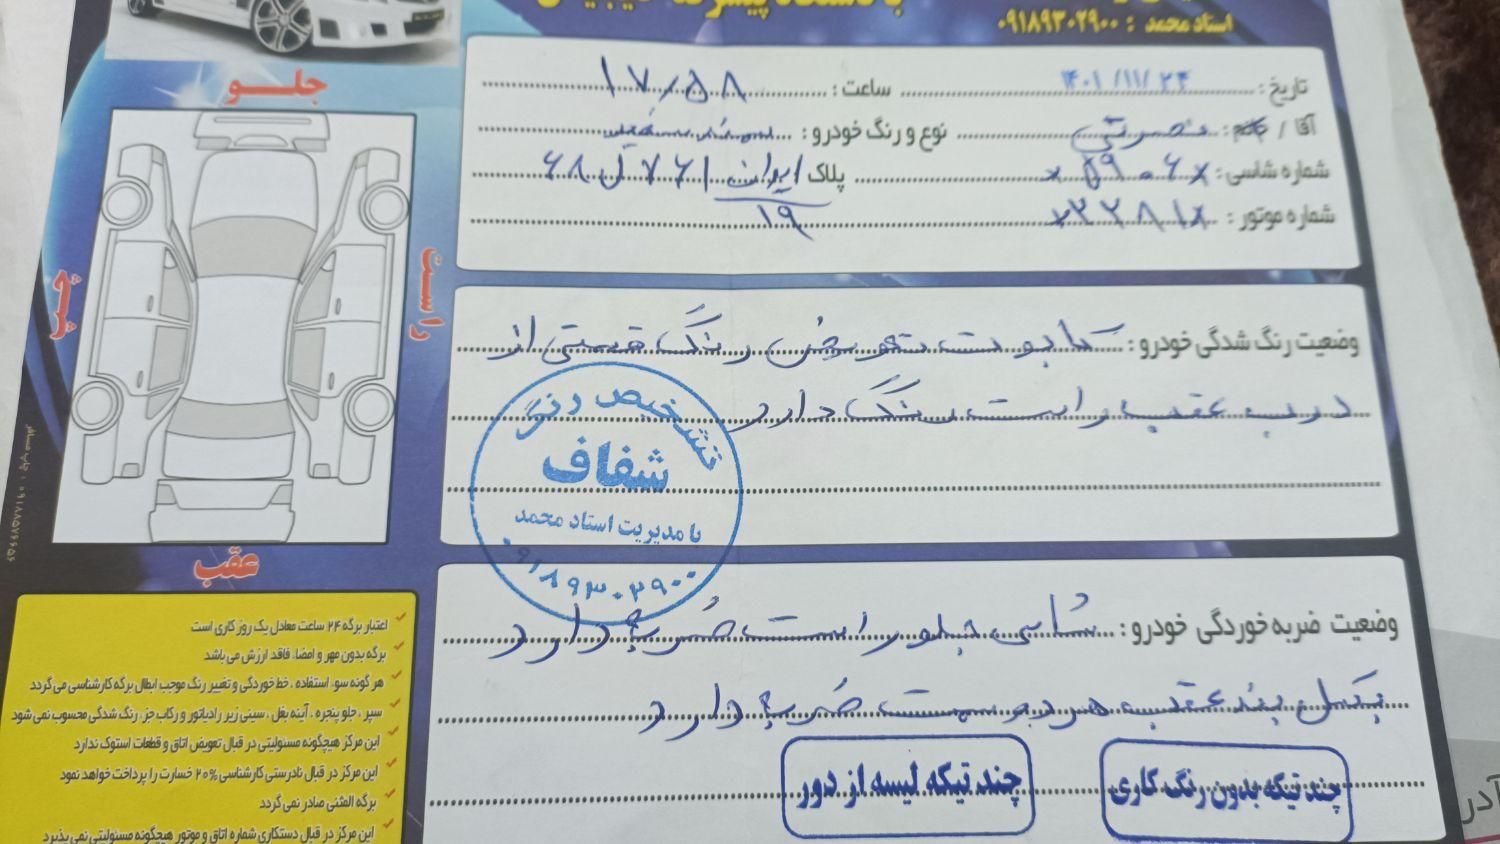 با دستگاه پیشرفته دیجیتال
استاد محمد : ۰۹۱۸۹۳۰۲۹۰۰
تاریخ : ۱۴۰۱/۱۱/۲۴ ساعت : ۱۷/۵۸
آقا / خانم : نصرتی نوع و رنگ خودرو : سمند سفید
شماره شاسی : ×۵۹۰۶× پلاک ایران ۷۶۱ ل ۶۸
۱۹
شماره موتور : ×۳۳۸۱×
وضعیت رنگ شدگی خودرو : کاپوت تعویض رنگ قسمتی از
درب عقب راست رنگ دارد
تشخیص رنگ
شفاف
با مدیریت استاد محمد
۰۹۱۸۹۳۰۲۹۰۰
وضعیت ضربه خوردگی خودرو : شاسی جلو راست ضربه دارد
بکسل بند عقب هر دو سمت ضربه دارد
چند تیکه بدون رنگ کاری
چند تیکه لیسه از دور
جلو
راست
چپ
عقب
اعتبار برگه ۲۴ ساعت معادل یک روز کاری است
برگه بدون مهر و امضا، فاقد ارزش می باشد
هر گونه سوء استفاده ، خط خوردگی و تغییر رنگ موجب ابطال برگه کارشناسی می گردد
سپر ، جلو پنجره ، آینه بغل ، سینی زیر رادیاتور و رکاب جزء رنگ شدگی محسوب نمی شود
این مرکز هیچگونه مسئولیتی در قبال تعویض اتاق و قطعات استوک ندارد
این مرکز در قبال نادرستی کارشناسی ۲۰% خسارت را پرداخت خواهد نمود
برگه المثنی صادر نمی گردد
این مرکز در قبال دستکاری شماره اتاق و موتور هیچگونه مسئولیتی نمی پذیرد
آدر